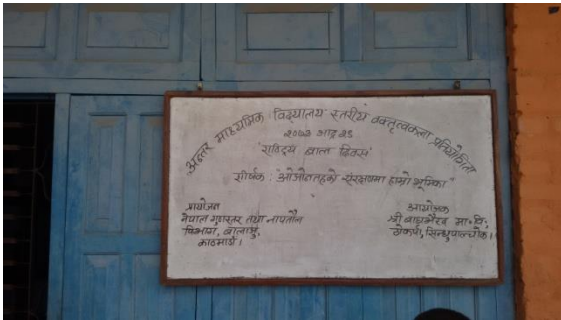 अन्तर माध्यमिक विद्यालय स्तरीय वक्तृत्वकला प्रतियोगिता
२०७३ भाद्र ३१
शीर्षक: "ओजोन तहको संरक्षणमा हाम्रो भूमिका"
प्रायोजक
नेपाल गुणस्तर तथा नापतौल
विभाग, बालाजु,
काठमाडौं।
आयोजक
श्री मा॰ वि॰
सिन्धुपाल्चोक।